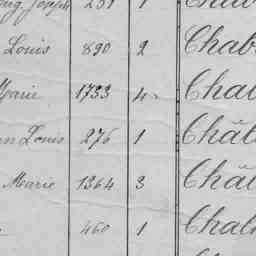 Joseph 1
Louis 890 2 Chab
Marie 1733 4 Cha
Louis 276 1 Chât
Marie 1364 3 Chât
460 1 Chal